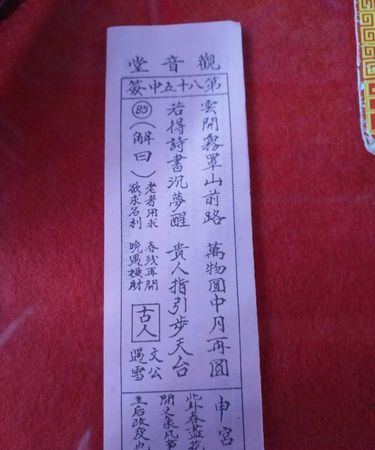 觀音堂
第八十五中簽
雲開霧罩山前路 萬物圓中月再圓
若得詩書沉夢醒 貴人指引步天台
85(解曰)
老者用求 春残再開
欲求名利 晚遇橫財
古人
文公
遇雪
申宮
此卦春
開之象凡事
主后改变也